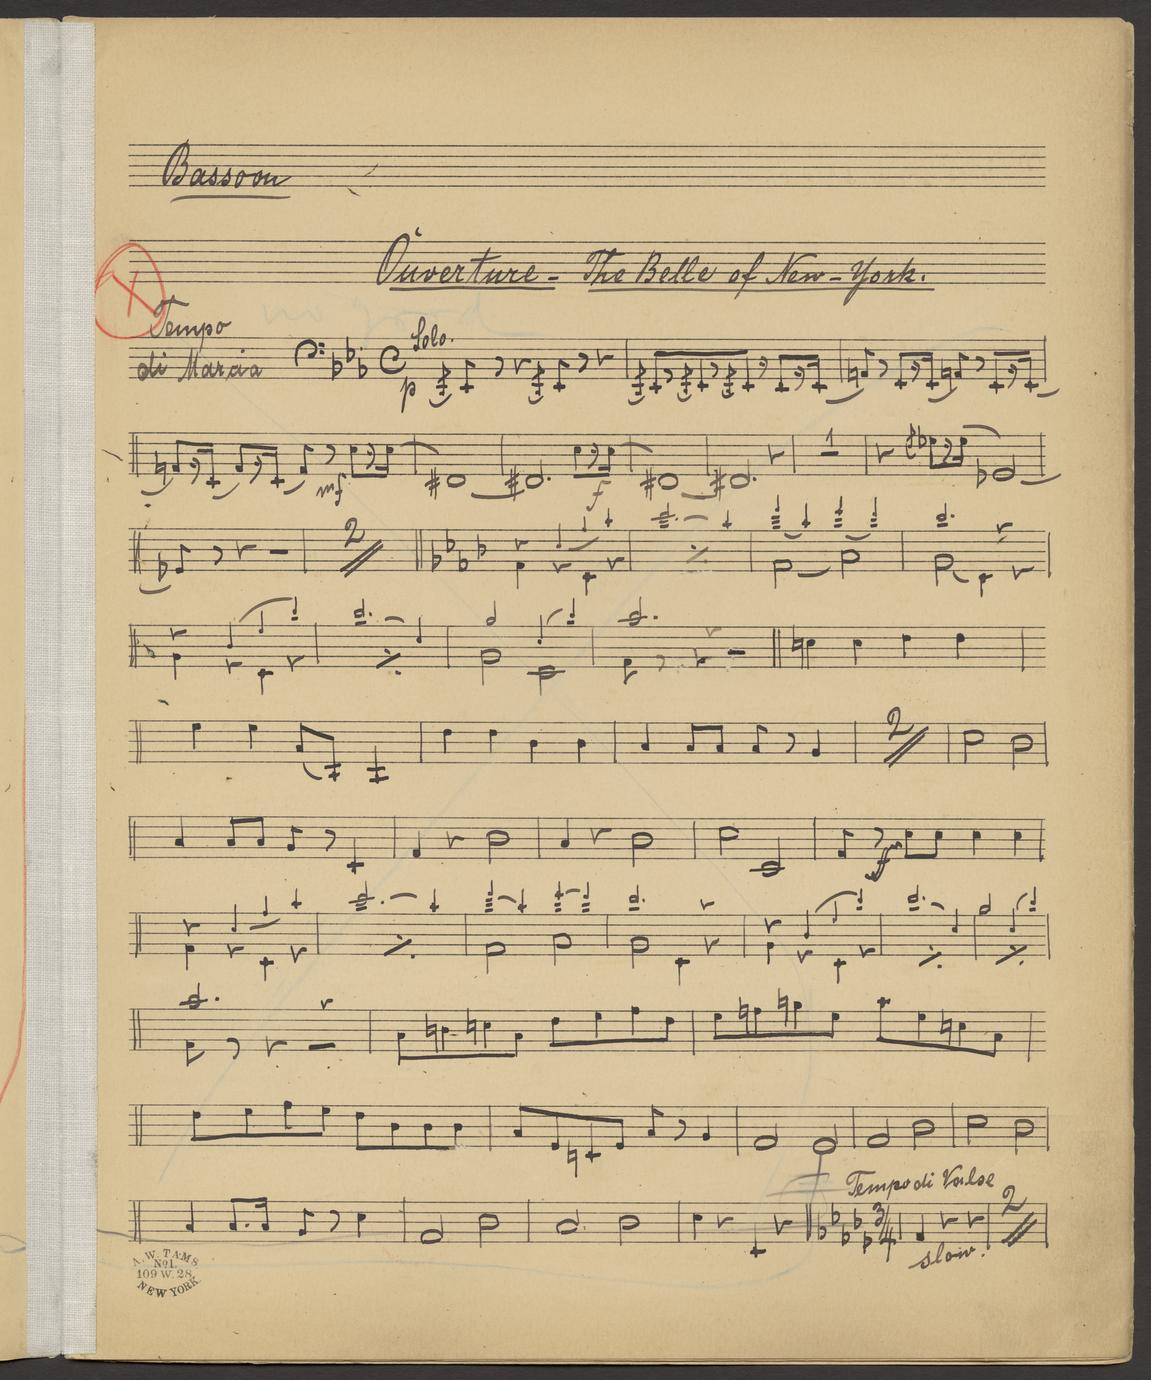 Bassoon
Ouverture - The Belle of New-York.
Tempo
di Marcia
Solo.
p
mf
f
1
2
2
f
Tempo di Valse
3/4
2
slow.
A. W. TAMS
No1.
109 W. 28.
NEW YORK